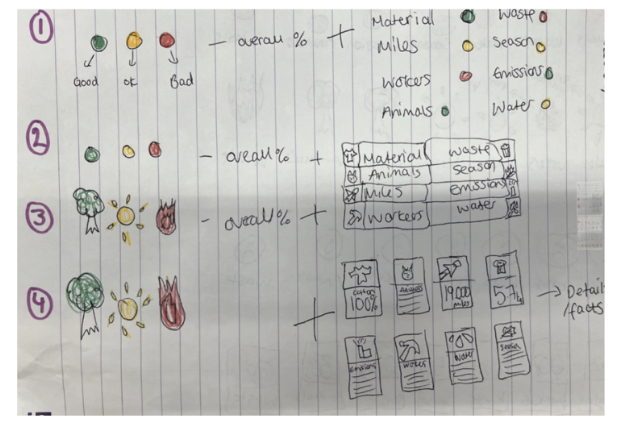 1
Material Waste
- overall % + Miles Season
Good ok Bad
Workers Emissions
Animals Water
2
- overall % + Material Waste
Animals Season
3
- overall % + Miles Emissions
Workers Water
4
100%
Animals
19,000 miles
57%
→ Details /facts
Emissions Workers Water Season